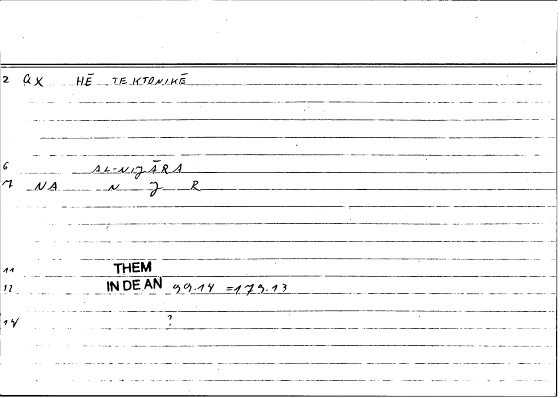 2 QX HĒ TEKTONIKĒ
6 AL-NIJĀRA
7 NA N J R
11 THEM
12 IN DE AN 99.14 =179.13
14 ?